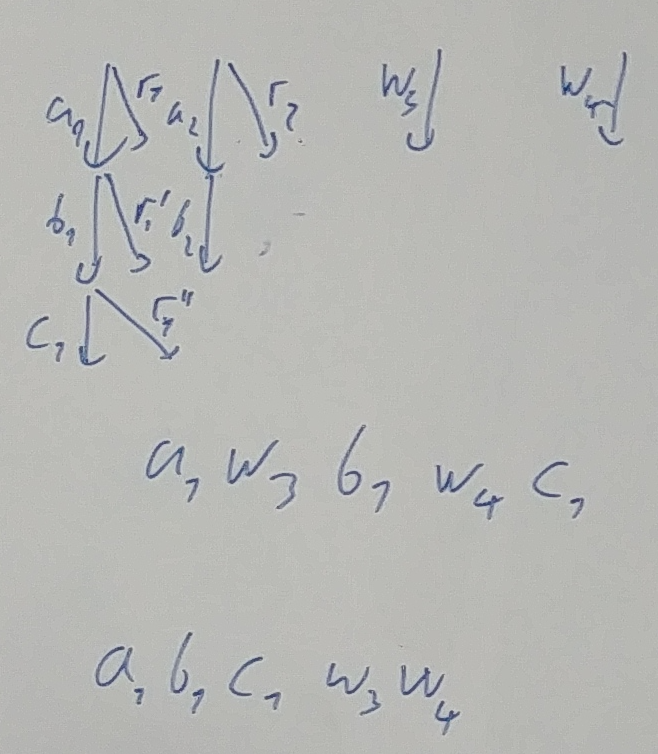 a₁ r₁ a₂ r₂ w₃ w₄
b₁ r₁' b₂
c₁ r₁''
a₁ w₃ b₁ w₄ c₁
a₁ b₁ c₁ w₃ w₄